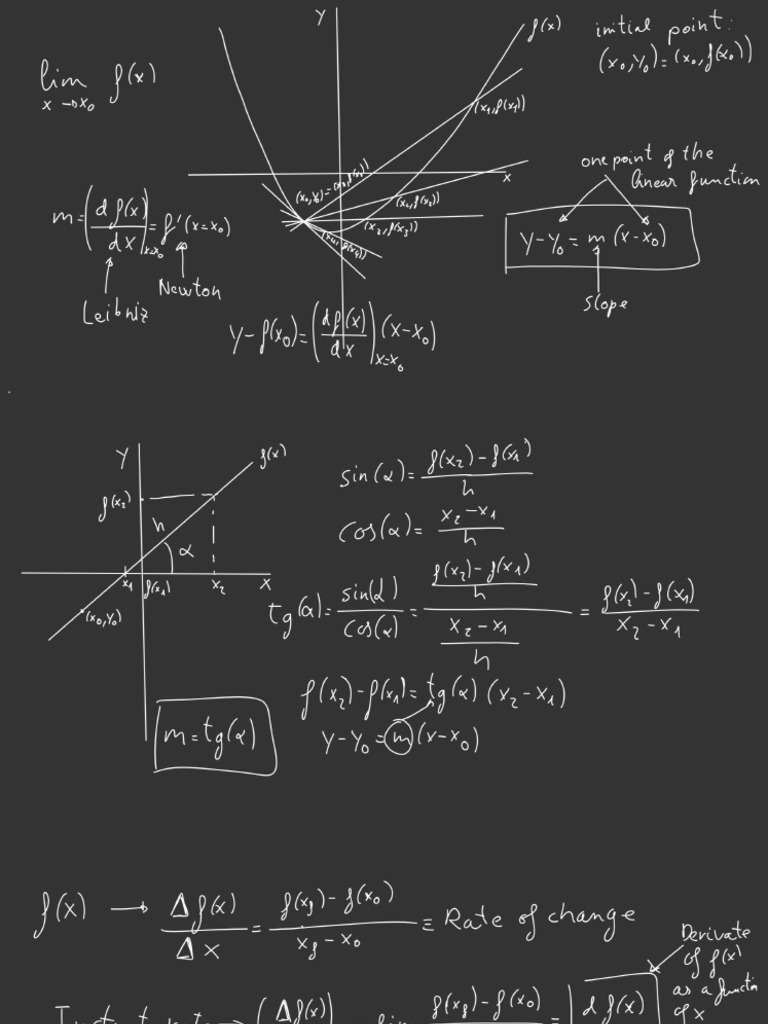 Y
f(x)
initial point:
(x₀,y₀)=(x₀,f(x₀))
lim f(x)
x→x₀
(x₁,f(x₁))
one point of the
linear function
x
(x₂,f(x₃))
m=(df(x)/dx)x=x₀=f'(x=x₀)
Y-Y₀=m(x-x₀)
Leibniz
Newton
Slope
Y-f(x₀)=(df(x)/dx)x=x₀(x-x₀)
Y
f(x)
f(x₂)
h
α
x₁
f(x₁)
x₂
X
(x₀,Y₀)
sin(α)=(f(x₂)-f(x₁))/h
cos(α)=(x₂-x₁)/h
tg(α)=sin(α)/cos(α)=((f(x₂)-f(x₁))/h)/((x₂-x₁)/h)=(f(x₂)-f(x₁))/(x₂-x₁)
f(x₂)-f(x₁)=tg(α)(x₂-x₁)
Y-Y₀=m(x-x₀)
m=tg(α)
f(x)→Δf(x)/Δx=(f(xf)-f(x₀))/(xf-x₀)≡Rate of change
Derivate
of f(x)
as a function
of x
(Δf(x)
f(xf)-f(x₀)
=
df(x)